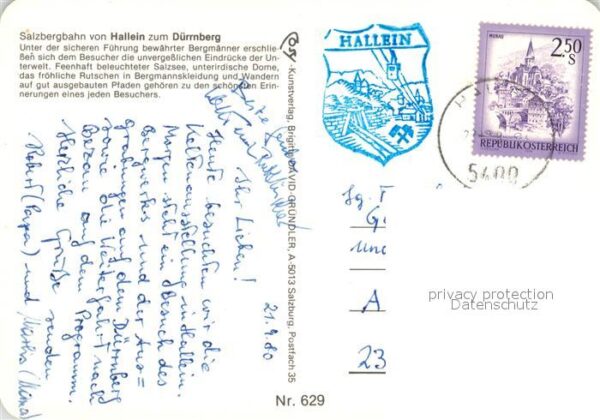 Salzbergbahn von Hallein zum Dürrnberg
Unter der sicheren Führung bewährter Bergmänner erschlie-
ßen sich dem Besucher die unvergeßlichen Eindrücke der Un-
terwelt. Feenhaft beleuchteter Salzsee, unterirdische Dome,
das fröhliche Rutschen in Bergmannskleidung und Wandern
auf gut ausgebauten Pfaden gehören zu den schönsten Erin-
nerungen eines jeden Besuchers.
Cosy-Kunstverlag, Brigitte DAVID-GRÜNDLER, A 5013 Salzburg, Postfach 35
Nr. 629
HALLEIN
MURAU
2.50
S
REPUBLIK ÖSTERREICH
5400
21.9.80
Ihr Lieben!
Heute besuchten wir die
Keltenausstellung in Hallein.
Morgen steht ein Besuch des
Bergwerkes und der Aus=
grabungen auf dem Dürrnberg
sowie die Weiterfahrt nach
Bezau auf dem Programm.
Herzliche Grüße senden
Robert (Papa) und
Fg. F
G
und
A
23
privacy protection
Datenschutz